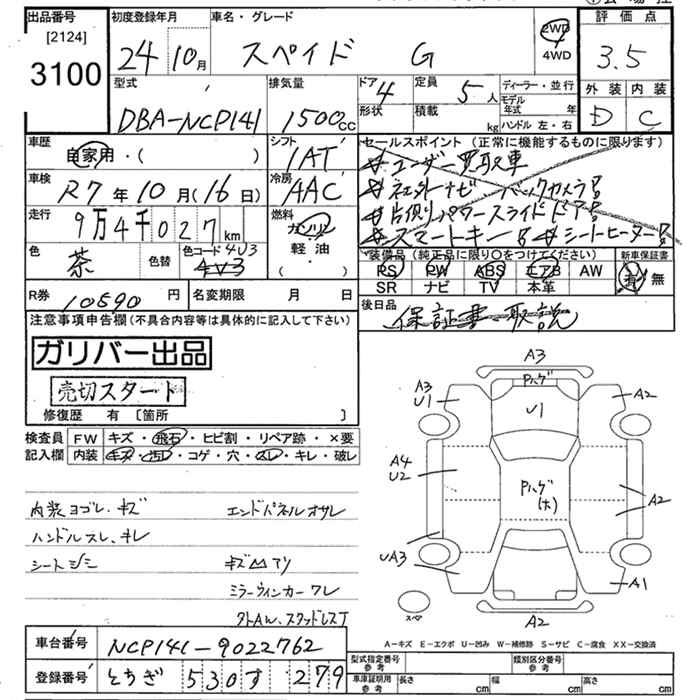 出品番号 初度登録年月 車名・グレード 評価点
[2124]
3100
24年10月 スペイド G
2WD
4WD
3.5
型式 排気量 ドア 4 定員 5人 ディーラー・並行
外装 内装
形状 積載 kg モデル年式 年
ハンドル 左・右
DBA-NCP141 1500cc
D C
車歴 シフト
自家用・( ) IAT
セールスポイント(正常に機能するものに限ります)
☆ユーザー買取車
☆社外ナビ バックカメラ
☆片側パワースライドドア
☆スマートキー ☆シートヒーター
車検 冷房
R7年10月(16日) AAC
走行 燃料
9万4千027km ガソリン
軽油
・( )
色 茶 色替 色コード 4V3
4V3
装備品(純正品に限り○をつけてください) 新車保証書
PS PW ABS エアB AW
SR ナビ TV 本革
有 無
R券 10590円 名変期限 月 日
後日品 保証書・取説
注意事項申告欄(不具合内容等は具体的に記入して下さい)
ガリバー出品
売切スタート
修復歴 有 [箇所 ]
検査員 FW キズ・飛石・ヒビ割・リペア跡・×要
記入欄 内装 キズ・汚レ・コゲ・穴・スレ・キレ・破レ
内装ヨゴレ・キズ エンドパネルオサレ
ハンドルスレ、キレ
シートシミ キズ凹アリ
ミラーウィンカーワレ
スタッドレス
A3
Pハゲ
A3
U1
U1
A2
A4
U2
Pハゲ
(ホ)
A2
UA3
A1
スペア
A2
A-キズ E-エクボ U-凹み W-補修跡 S-サビ C-腐食 XX-交換済
車台番号 NCP141-9022762
登録番号 とちぎ 530 す 279
型式指定番号 参考 類別区分番号 参考
車庫証明用 参考 長さ cm 幅 cm 高さ cm